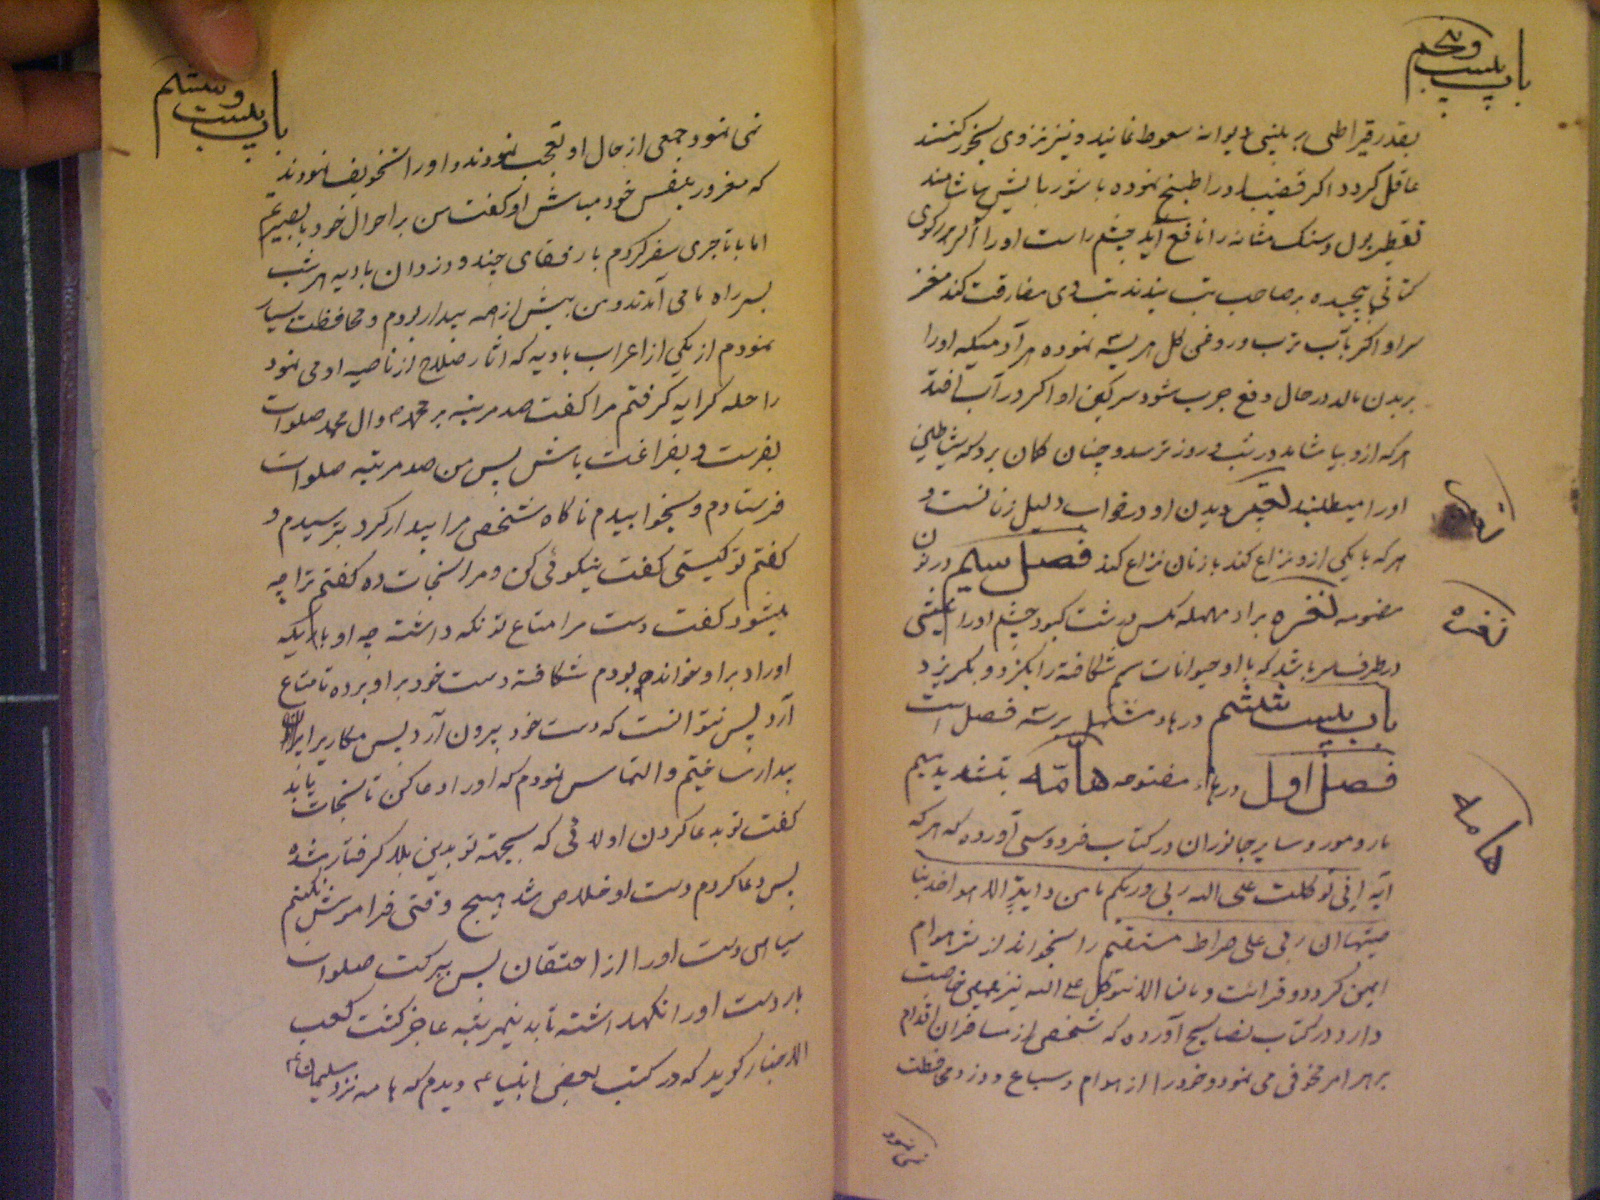 باب بیست و پنجم
بقدر قیراطی بر بینی دیوانه سعوط نمایند و نیز نزد وی بخور کنند
عاقل کردد اکر قضیب او را طبخ نموده با شوربا بیاشامند
تقطیر بول و سنک مثانه را نافع آید چشم راست او را اکر در رکوی
کتانی پیچیده بر صاحب تب بندند تب وی مفارقت کند مغز
سر او اکر بآب ترب و روغن کل سرشته نموده هر آدمیکه او را
بر بدن مالد در حال دفع جرب شود سرکین او اکر در آب افتد
هر که ازو بیاشامد در شب و روز ترسد و چنان کمان برد که شیاطین
او را میطلبند تعبیر دیدن او در خواب دلیل زنانست و
هر که با یکی ازو نزاع کند با زنان نزاع کند فصل سیم در نون
مضمومه نغره براء مهمله مکس درشت کبود چشم او را نیشی
در طرف سر باشد که با او حیوانات سم شکافته را بکزد و بکریزد
باب بیست و ششم در هاء مشتمل بر سه فصل است
فصل اول در هاء مفتوحه هامّه بتشدید میم
مار و مور و سایر جانوران در کتاب فردوسی آورده که هر که
آیه انی توکلت علی الله ربی و ربکم ما من دابة الا هو اخذ بنا
صیتها ان ربی علی صراط مستقیم را بخواند از شر هوام
ایمن کردد و قرائت و ما لنا الا نتوکل علی الله نیز همین خاصیت
دارد در کتاب نصایح آورده که شخصی از مسافران اقدام
بهر امر مخوفی می نمود و خود را از هوام و سباع و دزد محافظت
نمی نمود
نزاع
نغره
هامه
باب بیست و ششم
نمی نمود جمعی از حال او تعجب نمودند و او را تخویف نمودند
که مغرور بنفس خود مباش او کفت من بر احوال خود بابصیرتم
اما با تاجری سفر کردم با رفقای چند و دزدان بادیه هر شب
بسر راه ما می آمدند و من بیش از همه بیدار بودم و محافظت بسیار
نمودم از یکی از اعراب بادیه که آثار صلاح از ناصیه او می نمود
راحله کرایه کرفتم مرا کفت صد مرتبه بر محمد و آل محمد صلوات
بفرست و بفراغت باش پس من صد مرتبه صلوات
فرستادم و بخوابیدم ناکاه شخصی مرا بیدار کرد بترسیدم و
کفتم تو کیستی کفت نیکوئی کن و مرا نجات ده کفتم ترا چه
میشود کفت دست مرا متاع تو نکه داشته چه او بارا یکه
اوراد بر او خوانده بودم شکافته دست خود بر او برده تا متاع
آرد پس نتوانست که دست خود بیرون آرد پس مکاری را
بیدار ساختم و التماس نمودم که او را دعا کن تا نجات یابد
کفت تو بدعا کردن اولا فی که بجهة تو بدین بلا کرفتار شده
پس دعا کردم دست او خلاص شد هیچ وقتی فراموش نکنم
سیاهی دست او را از احتقان پس ببرکت صلوات
بار دست او را نکهداشته تا بدینمرتبه عاجز کشت کعب
الاحبار کوید که در کتب بعضی انبیاء دیدم که هامه نزد سلیمان